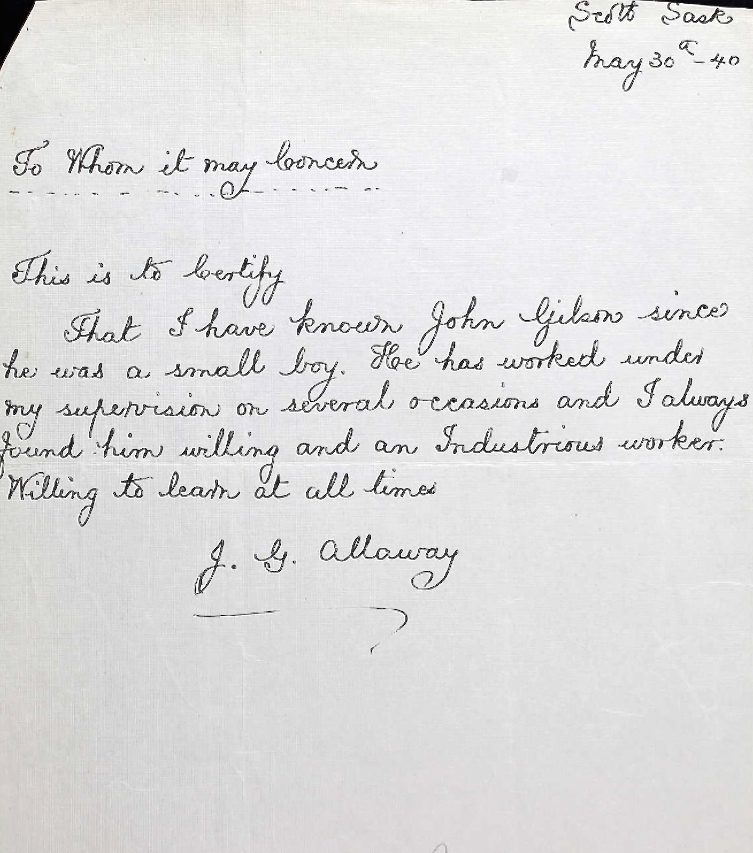 Scott Sask
May 30th - 40
To Whom it may Concern
This is to Certify
That I have known John Gilson since
he was a small boy. He has worked under
my supervision on several occasions and I always
found him willing and an Industrious worker.
Willing to learn at all times
J. G. Allaway